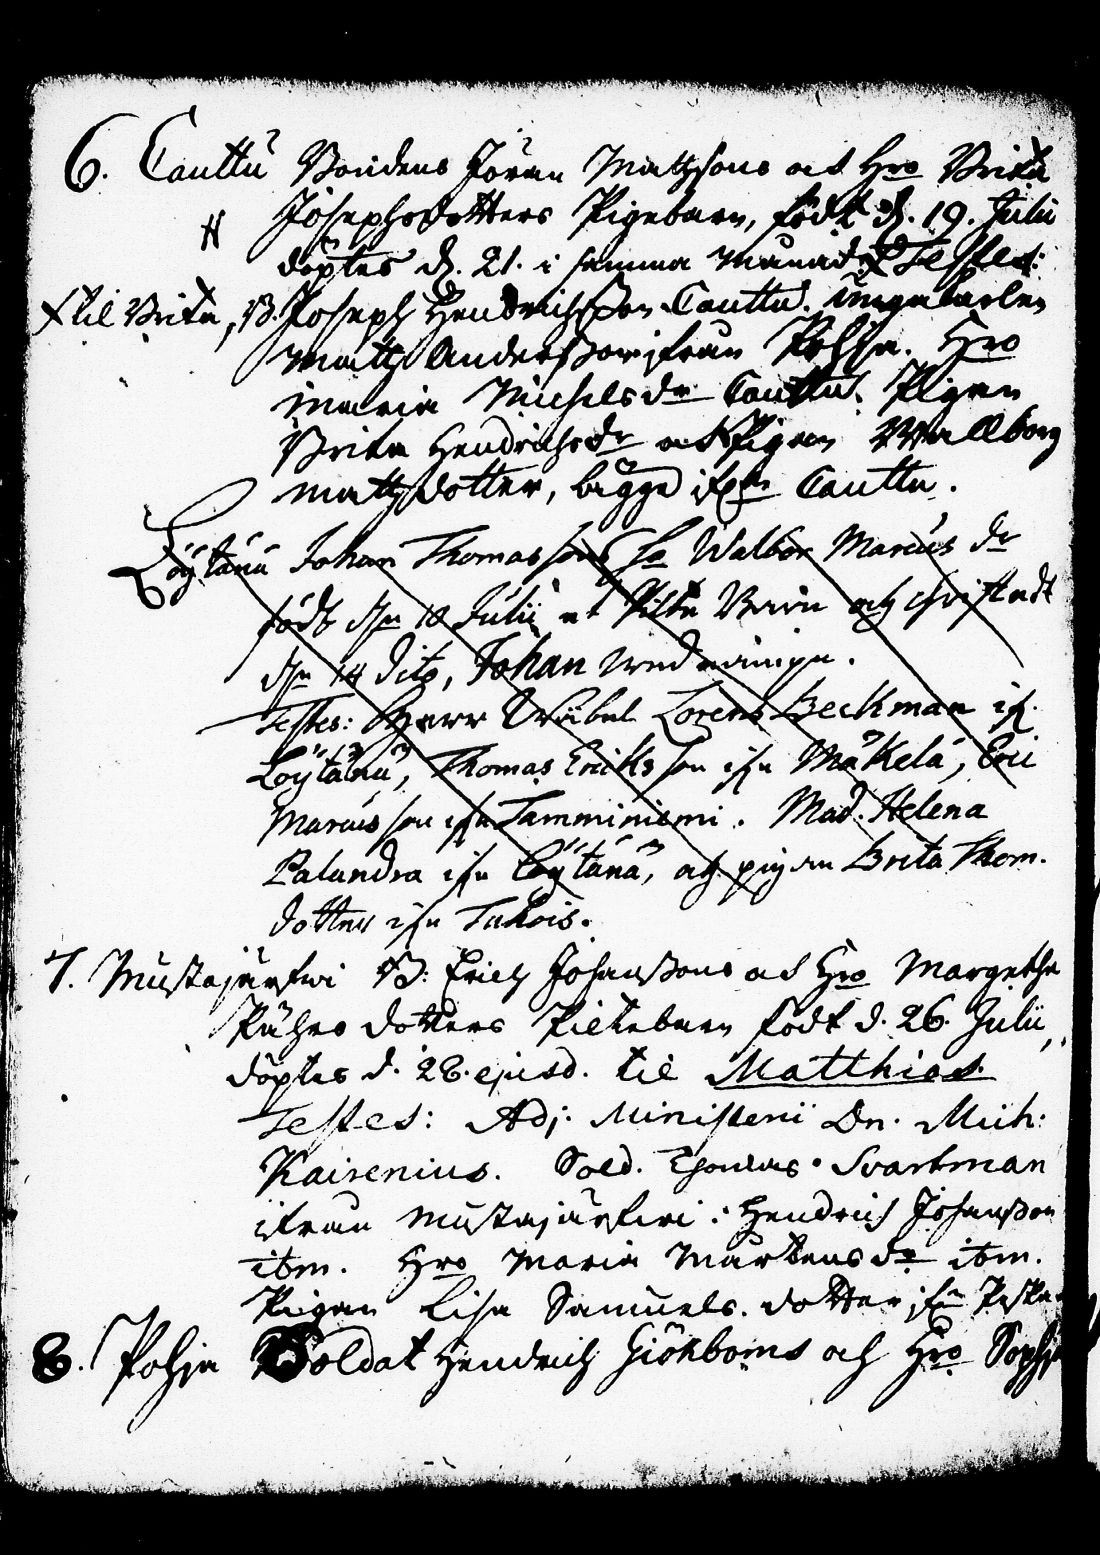 6. Cauttu Bondens Jöran Mathssons och Hro Brita
Josephsdotters Pigebarn, födt d. 19. Julii
döptes d. 21. i samma Månad Testes:
til Brita, B. Joseph Hendrichsson Cauttu. Ungakarlen
Matts Andersson ifrån Pohja. Hro
Maria Michelsdr Cauttu. Pigan
Brita Hendrichsdr och Pigan Wallborg
Mattsdotter, bägge ifrån Cauttu.
Löytänä Johan Thomassons ha Walbor Marcus dr
födt dn 10 Julii et Pilte Barn och christnadt
dn 14 dito, Johan
Testes: Herr Wäbel Lorens Beckman ifr.
Löytänä, Thomas Eriksson ifn Mäkelä, Eric
Marcusson ifn Tamminiemi. Mad. Helena
Palandra ifn Löytänä, och pigan Brita Thom.
dotter ifn
7. Mustajärfwi B: Erich Johanssons och Hro Margetha
dotters Piltebarn födt d. 26. Julii,
döptes d. 28. ejusd. til Matthias.
Testes: Adj. Ministerii Dn. Mich:
Kairenius. Sold. Thomas Svartman
ifrån Mustajärfwi. Hendrich Johansson
ibm. Hro Maria Mårtensdr ibm.
Pigan Lisa Samuels. dotter ifrn
8. Pohja Soldat Hendrich Giökboms och Hro